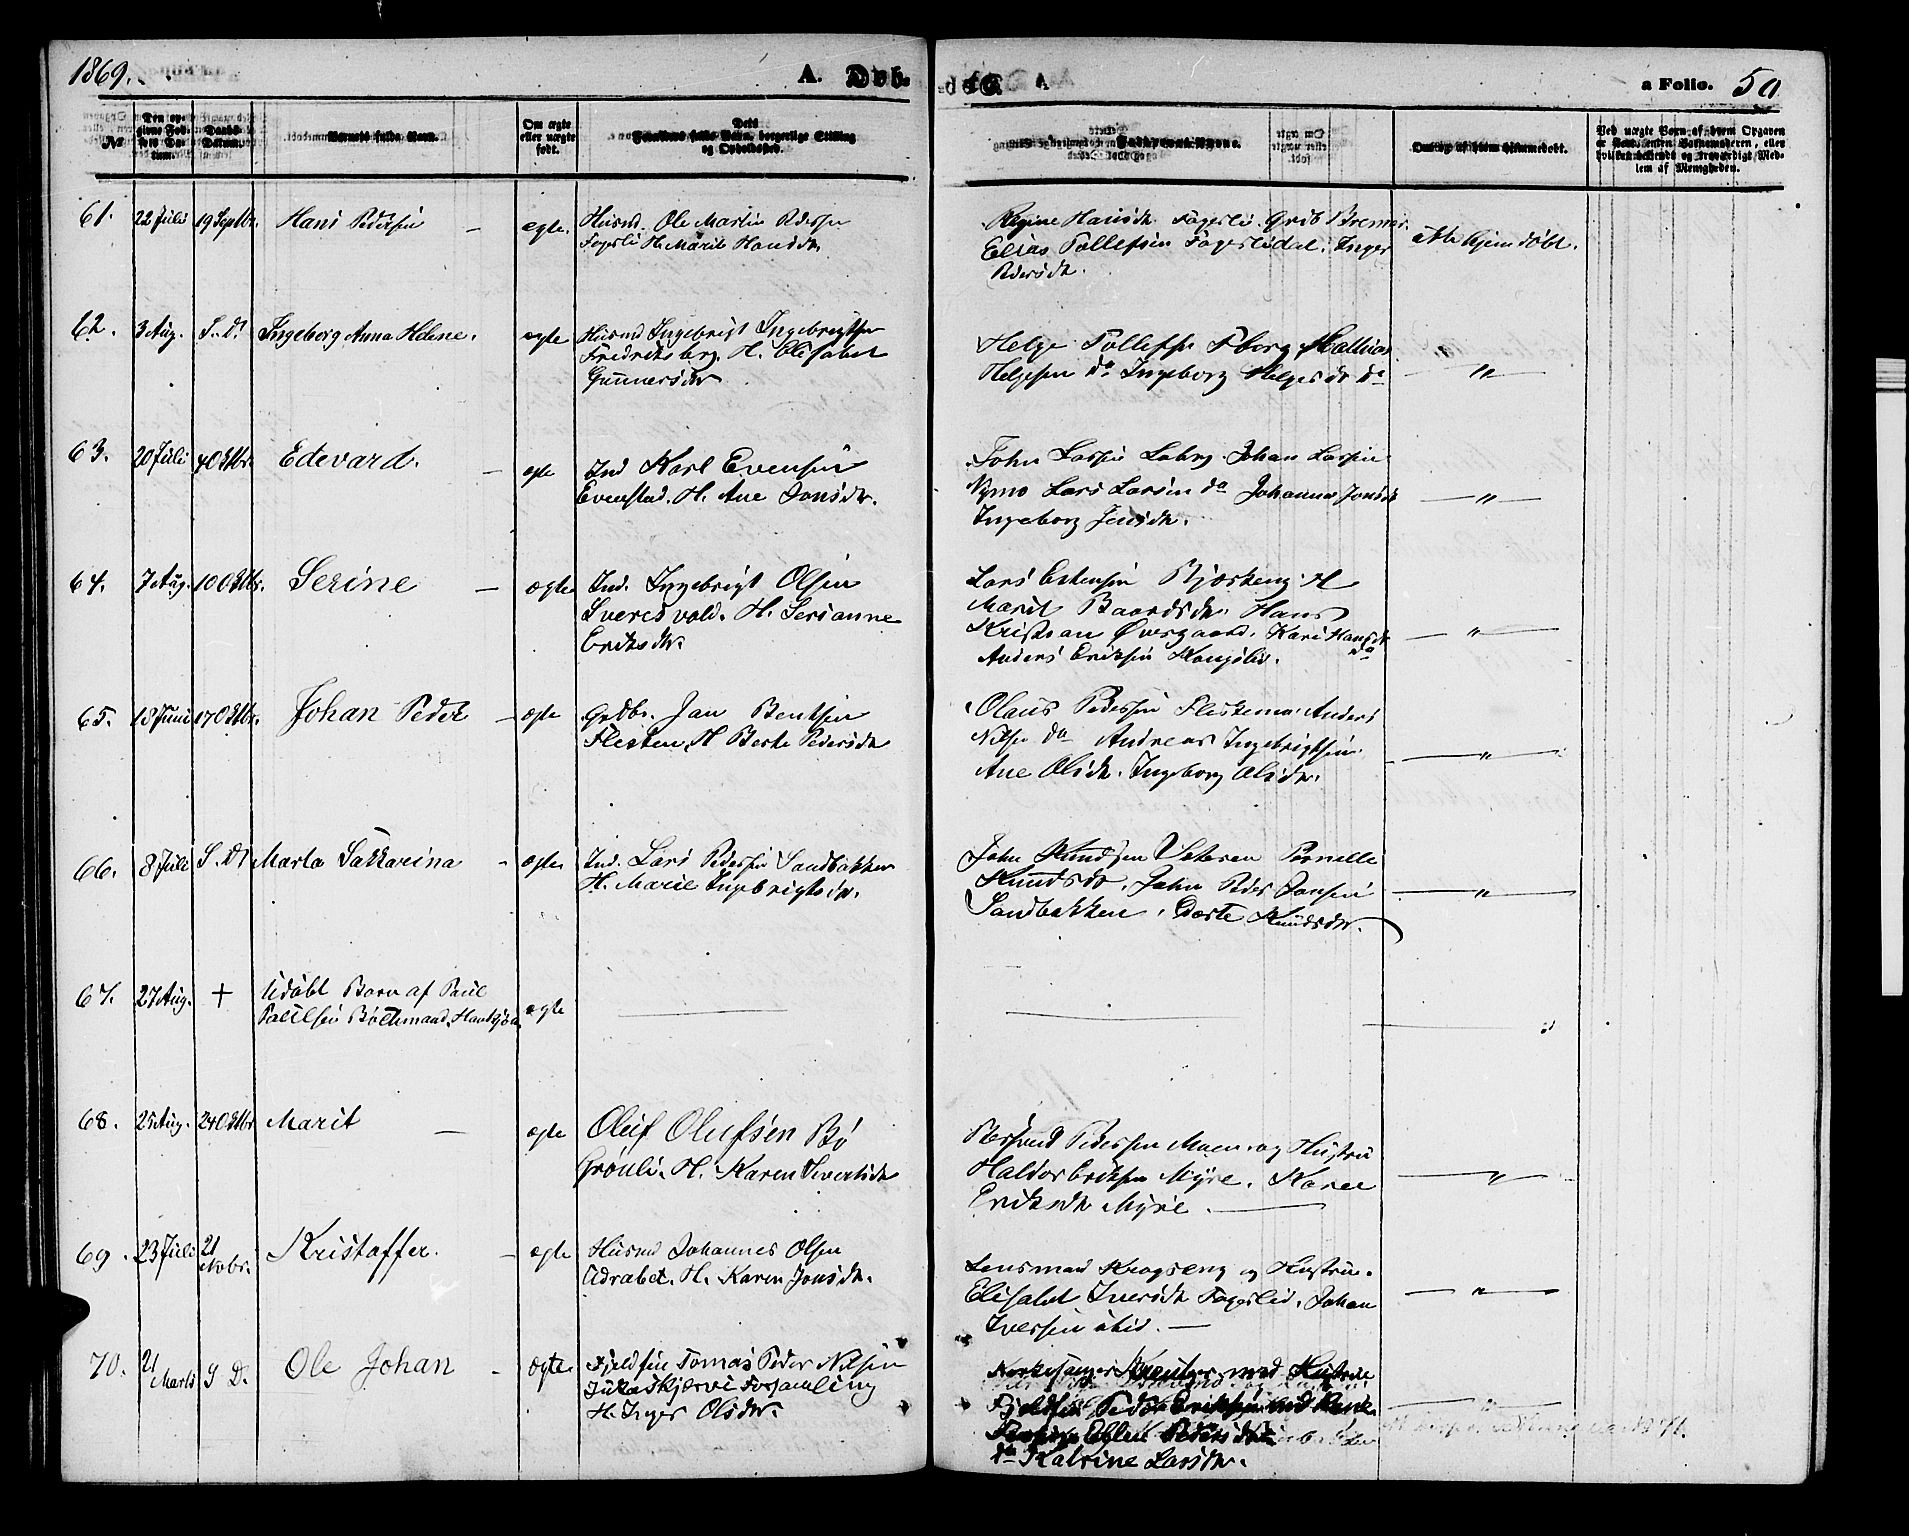 1869.
A. Døb-
te.
a Folio. 50
No
Den op-
givne Fød-
sels Da-
tum.
Daabs-
Datum.
Barnets fulde Navn.
Om ægte
eller uægte
født.
Dets
Forældres fulde Navn, borgerlige Stilling
og Opholdssted.
Faddernes Navne.
Om og af hvem hjemmedøbt.
Ved uægte Børn af hvem Opgaven
er
eller
Med-
lem af Menigheden.
61. 22 Juli 19 Septbr. Hans Pedersen – ægte.
Husmd. Ole Martin Pedersen
Fagerli H. Marit Hansdtr.
Regine Hansdtr. Fagerli
Elias Tollefsen Fagerlidal. Inger
Pedersdtr.
ikke hjemdøbt.
62. 3 Aug. S. D. Ingeborg Anna Helene. ægte
Husmd Ingebrigt Ingebrigtsen
Fredriksberg H. Elisabet
Gunnersdtr
Helge Tollefsen Fberg Mathias
Helgesen do Ingeborg Helgesdtr do
– " –
63. 20 Juli Edevard. – ægte
Ind Karl Evensen
Evenstad. H. Ane Jonsdtr.
John Larsen Johan Larsen
Nymo Lars Larsen do Johanna Jonsdtr
Ingeborg Jensdtr.
– " –
64. 7 Aug. 10 Oktbr. Serine – ægte
Ind. Ingebrigt Olsen
Sveresvold. H. Serianne
Eriksdtr.
Lars Estensen Bjørkeng H
Marit Baardsdtr. Hans
Kristian Øvergaard. Kari Hansdtr
do
Anders Eriksen Kongsli.
– " –
65. 18 Juni 17 Oktbr. Johan Peder – ægte
Grdbr. Jan Bentsen
Flesten H Berte Pedersdtr
Olaus Pedersen Anders
Nilsen do Andreas Ingebrigtsen
Ane Olsdtr. Ingeborg Olsdtr.
– " –
66. 8 Juli S. D. Marta Sakkarina – ægte
Ind. Lars Pedersen Sandbakken
H. Marie Ingebrigtsdtr.
John Knudsen Seteren Pernille
Knudsdtr. John Peder Jonsen
Sandbakken. Dorte Knudsdtr.
– " –
67. 27 Aug. + Udøbt Barn af Paul
Paulsen ægte
68. 25 Aug. 24 Oktbr Marit – ægte
Oluf Olufsen Bø
Grønli. H. Karen Sivertsdtr
Pedersen Moen og Hustru
Haldor Eriksen Myre. Karen
Eriksdtr Myre. –
– " –
69. 23 Juli 21
Novbr. Kristoffer. – ægte
Husmd Johannes Olsen
Adrabet. H. Karen Jonsdtr.
Lensmand Krogseng og Hustru.
Elisabet Iversdtr Fagerlid. Johan
Iversen ibid. –
– " –
70. 21
Marts S D. Ole Johan – ægte
Fjeldfin Tomas Peder Nilsen
Jukaskjærvi Forsamling
H. Inger Olsdtr.
Kirkesanger med Hustru
Fjeldfin Peder Eriksen
Ellen Pedersdtr
do Katrine Larsdtr.